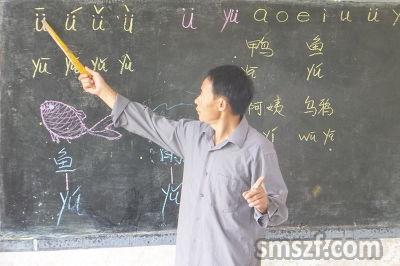 ǖ ǘ ǚ ǜ ü yü a o e i u ü y
yū yú yǔ yù 鸭 鱼
yā yú
阿姨 乌鸦
yí wū yā
鱼
yú
smszf.com